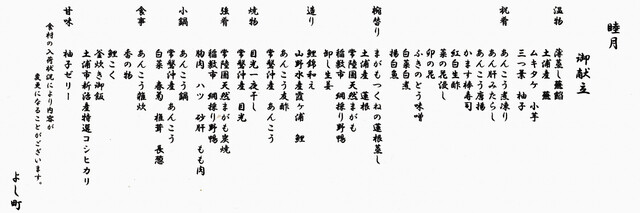 睦月
御献立
温物
薄蒸し蕪餡
土浦産 蕪
ムキタケ 小芋
三つ葉 柚子
祝肴
あんこう煮凍り
あん肝みたらし
あんこう唐揚
かます棒寿司
紅白生酢
菜の花浸し
卯の花
ふきのとう味噌
白菜白煮
揚白慈姑
椀替り
まがもつくねの蓮根蒸し
土浦産 蓮根
常陸国天然まがも
稲敷市 網採り野鴨
卸し生姜
造り
鯉錦和え
山野水産霞ヶ浦 鯉
あんこう友酢
常磐沖産 あんこう
焼物
目光一夜干し
常磐沖産 目光
強肴
常陸国天然まがも炭焼
稲敷市 網採り野鴨
胸肉 ハツ 砂肝 もも肉
小鍋
あんこう鍋
常磐沖産 あんこう
白菜 春菊 椎茸 長葱
食事
あんこう雑炊
香の物
鯉こく
釜炊き御飯
土浦市新治産特選コシヒカリ
甘味
柚子ゼリー
食材の入荷状況により内容が
変更になることがございます。
よし町